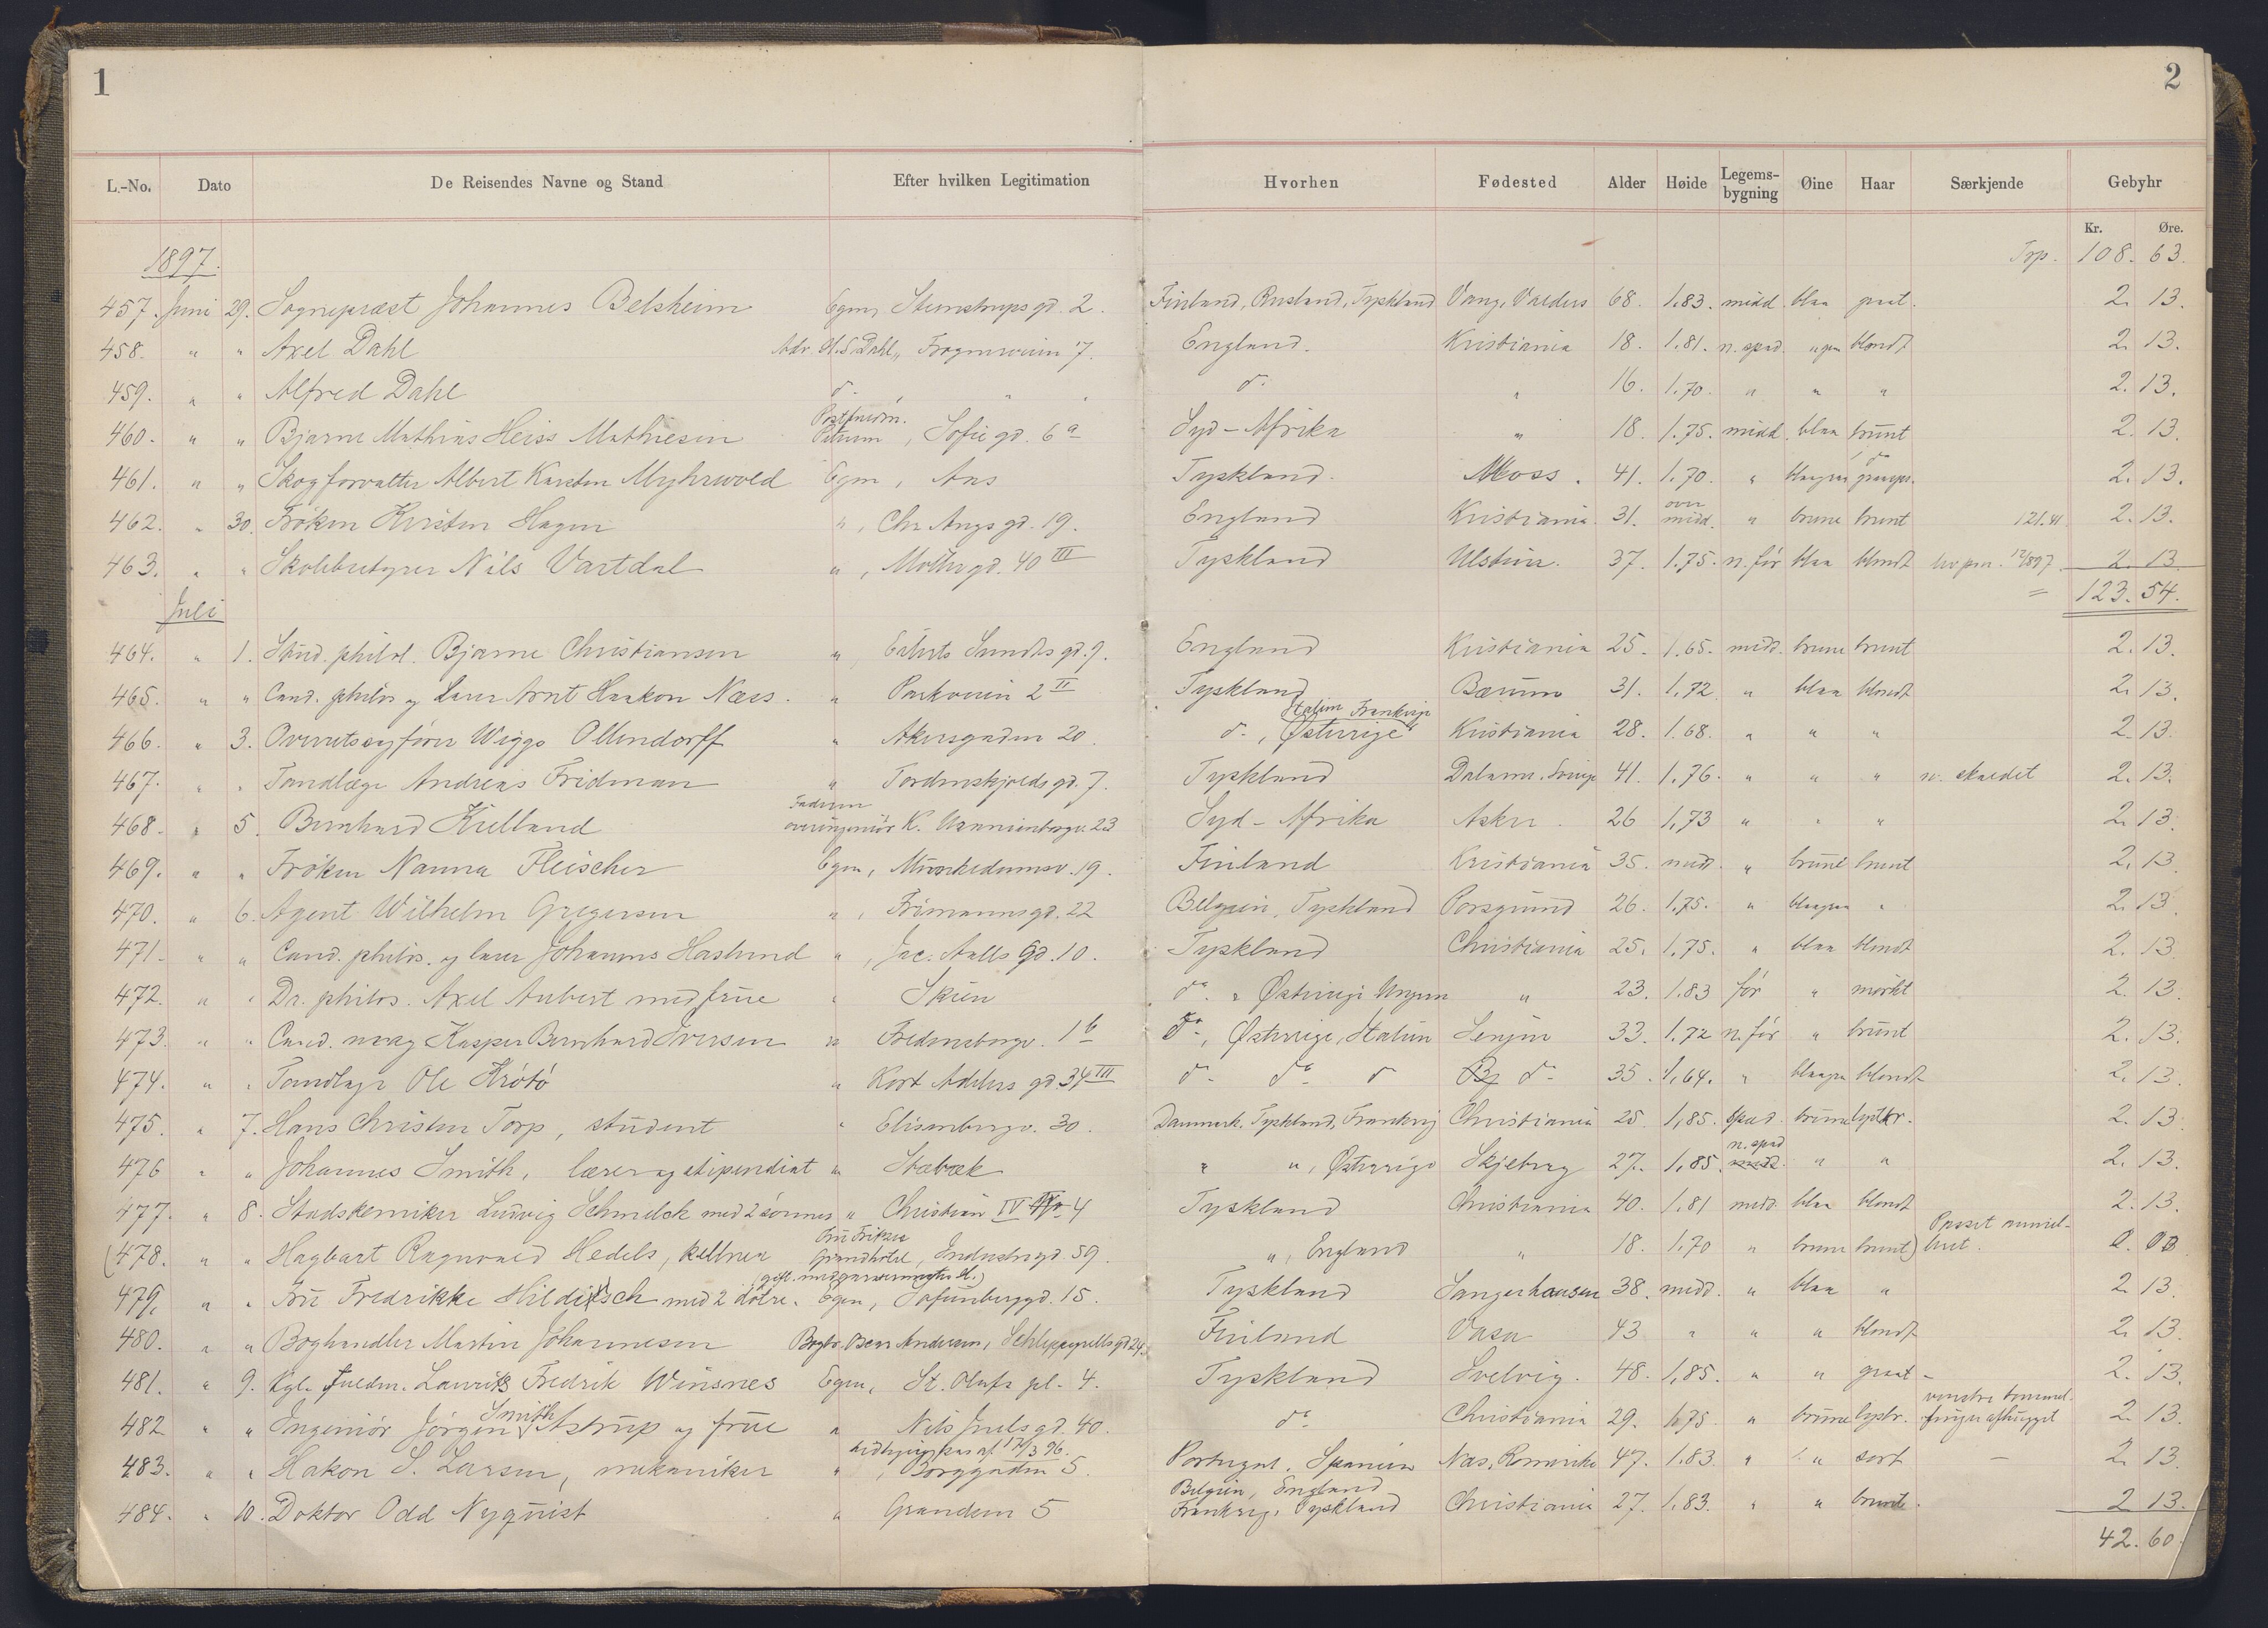 1
2
L.-No. Dato De Reisendes Navne og Stand Efter hvilken Legitimation Hvorhen Fødested Alder Høide Legems-bygning Øine Haar Særkjende Gebyhr
Kr. Øre.
1897. Trp. 108. 63.
457. Juni 29. Sognepræst Johannes Belsheim Egen, Stenstrups gd. 2. Finland, Rusland, Tyskland Vang, Valders 68. 1.83. midd. blaa graat. 2. 13.
458. " " Axel Dahl Adr. H.S. Dahl, Frognerveien 7. England. Kristiania 18. 1.81. n. spæd. blondt 2. 13.
459. " " Alfred Dahl do " " do " 16. 1.70. " " " 2. 13.
460. " " Bjarne Mathias Heiss Mathiesen Postfuldm. Petersen, Sofie gd. 6a Syd-Afrika " 18. 1.75. midd. blaa brunt 2. 13.
461. " " Skogforvalter Albert Karsten Myhrwold Egen, Aas Tyskland. Moss. 41. 1.70. " blaagraa 2. 13.
462. " 30. Frøken Kirsten Hagen ", Chr. Augs gd. 19. England Kristiania. 31. over midd. " brune brunt 121.41 2. 13.
463. " " Skolebestyrer Nils Vartdal ", Møllergd. 40 III Tyskland Ulstein. 37. 1.75. n. før blaa blondt 12/897. 2. 13.
= 123. 54.
Juli
464. " 1. Stud. philol. Bjarne Christiansen ", Eilerts Sundts gd. 9. England Kristiania 25. 1.65. midd. brune brunt 2. 13.
465. " " Cand. philos og Lærer Arnt Haakon Næss. " Parkveien 2 II Tyskland Bærum 31. 1.72 " blaa blondt 2. 13.
466. " 3. Overretssagfører Wiggo Ollendorff " Akersgaden 20. do, Østerrige Italien Frankrige Kristiania 28. 1.68. " " " 2. 13.
467. " " Tandlæge Andreas Fridman " Tordenskjolds gd. 7. Tyskland Dalarne. Sverige 41. 1.76. " " " n. skaldet 2. 13.
468. " 5. Bernhard Kielland Faderen overingeniør K. Uranienborgv. 23 Syd-Afrika Asker. 26 1,73 " " " 2. 13.
469. " " Frøken Nanna Fleischer Egen, Munkedamsv. 19. Finland Kristiania 35. midd. " brune brunt 2. 13.
470. " 6. Agent Wilhelm Gregersen ", Frimanns gd. 22 Belgien, Tyskland Porsgrund 26. 1.75. " blaagraa " 2. 13.
471. " " Cand. philos. og lærer Johannes Haslund ", Jac. Aalls gd. 10. Tyskland Christiania 25. 1.75. " blaa blondt 2. 13.
472. " " Dr. philos. Axel Aubert med frue " Skien do " Østerrige Ungarn " 23. 1.83 før " mørkt 2. 13.
473. " " Cand. Kasper Bernhard Iversen " Fredensborgv. 1b do, Østerrige, Italien Senjen 33. 1.72 n. før " brunt 2. 13.
474. " " Tandlæge Ole Krøtø " Kort Adelers gd. 34 III do do do do 35. 1,64. " blaagraa blondt 2. 13.
475. " 7. Hans Christen Torp, student " Elisenbergv. 30. Danmark. Tyskland, Frankrig Christiania 25 1,85. spæd. brune lystbr. 2. 13.
476 " " Johannes Smith, lærer og stipendiat " Stabæk " ", Østerrige Skjeberg 27. 1,85. n. spæd midd. " " 2. 13.
477. " 8. Stadskemiker Ludvig Schmelck med 2 sønner " Christian IV 4 Tyskland Christiania 40. 1.81 midd. blaa blondt 2. 13.
(478. " " Hagbart Ragnvald Hedels, kellner Fru Eriksen Grandhotel, Industrigd. 59. ", England " 18. 1.70 " brune brunt) Passet annul-leret. 0. 00
479. " " Fru Fredrikke Hilditsch med 2 døtre. Egen, Sofienberggd. 15. Tyskland Sangerhausen 38. midd. " blaa " 2. 13.
480. " " Boghandler Martin Johannesen Bogbr. Oscar Andersen, Schleppegrells gd 24. Finland Vasa 43 " " " blondt 2. 13.
481. " 9. Kgl. fuldm. Laurits Fredrik Winsnes Egen, St. Olafs pl. 4. Tyskland Svelvig. 48. 1,85. " " graat - 2. 13.
482 " " Ingeniør Jørgen Smith Astrup og frue " Nils Juels gd. 40. do Christiania 29. 1.75 " brune lysbr. venstre tommel-finger afhugget 2. 13.
483. " " Hakon S. Larsen, mekaniker " af 17/3 96. , Borggaden 5. Portugal, Spanien Næs, Romerike 47. 1.83. " " sort - 2. 13.
484. " 10. Doktor Odd Nyquist " Grændsen 5 Belgien, England Frankrig, Tyskland Christiania 27. 1.83. " " brunt. 2 13.
42. 60.